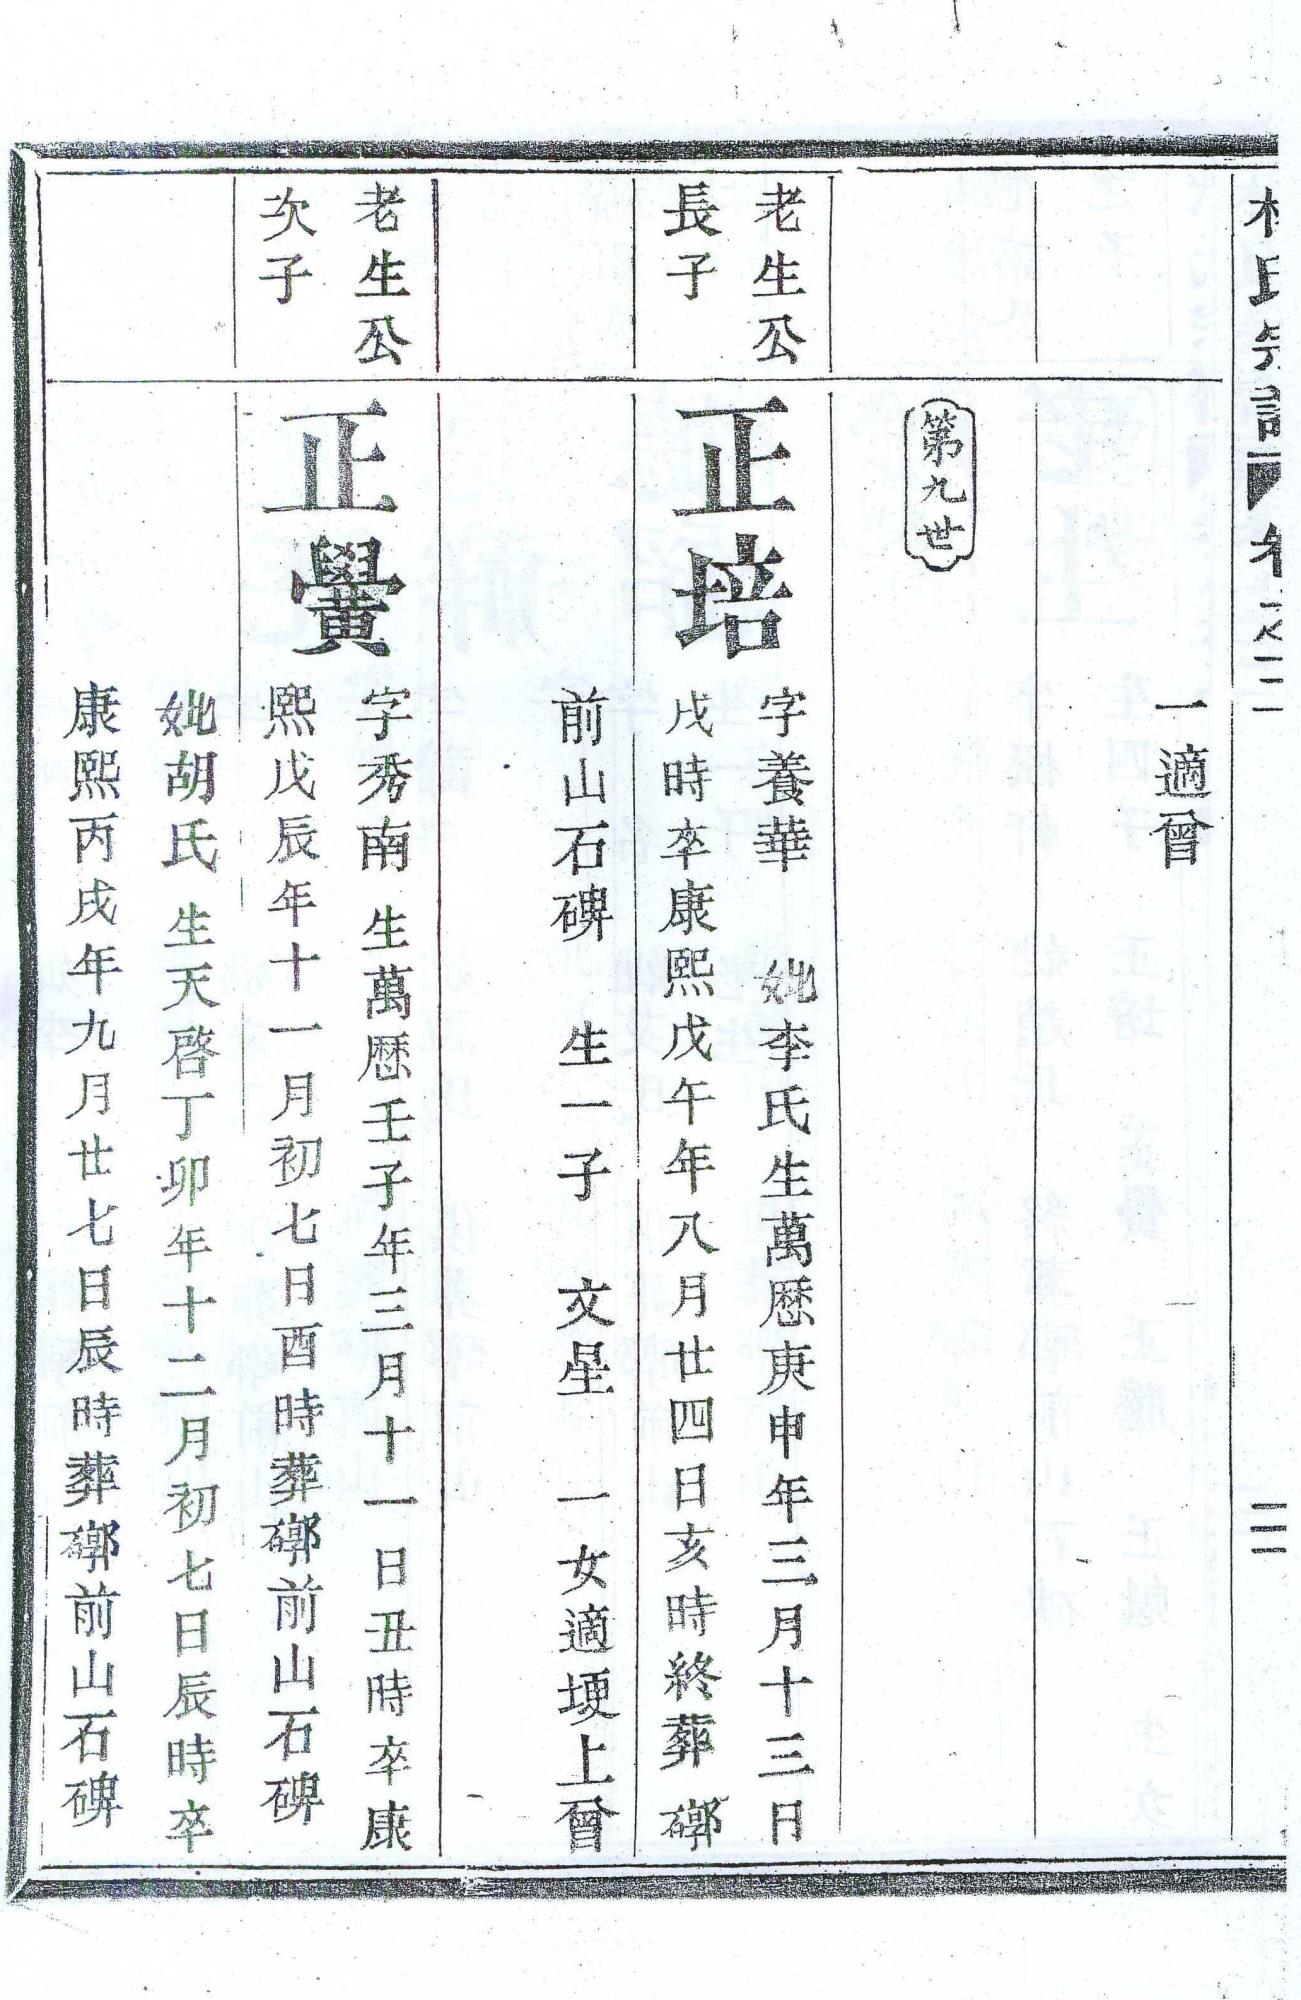 氏宗譜 卷之二 三
一適曾
第九世
老生公
長子
正培
字養華 妣李氏生萬歷庚申年三月十三日
戌時卒康熙戊午年八月廿四日亥時終葬䃍
前山石碑 生一子 文星 一女適埂上曾
老生公
次子
正黌
字秀南 生萬歷壬子年三月十一日丑時卒康
熙戊辰年十一月初七日酉時葬䃍前山石碑
妣胡氏 生天啓丁卯年十二月初七日辰時卒
康熙丙戌年九月廿七日辰時葬䃍前山石碑